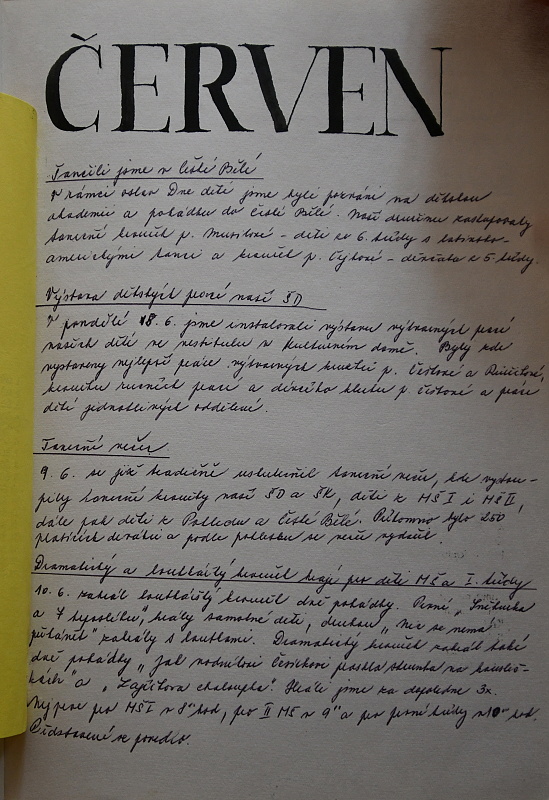 ČERVEN
Tančili jsme v České Bělé
V rámci oslav Dne dětí jsme byli pozváni na dětskou
akademii a pohádku do České Bělé. Naši družinu zastupovaly
taneční kroužek p. Musilové - děti ze 6. třídy s latinsko-
americkými tanci a kroužek p. Cejkové - děvčata z 5. třídy.
Výstava dětských prací naší ŠD
V pondělí 8. 6. jsme instalovali výstavu výtvarných prací
našich dětí ve vestibulu v Kulturním domě. Byly zde
vystaveny nejlepší práce výtvarných kroužků p. Čistové a
kroužku ručních prací a dívčího klubu p. Čistové a práce
dětí jednotlivých oddělení.
Taneční večer
9. 6. se již tradičně uskutečnil taneční večer, kde vystou-
pily taneční kroužky naší ŠD a ŠK, děti z MŠ I i MŠ II,
dále pak děti z Pohledu a České Bělé. Přítomno bylo 250
platících diváků a podle potlesku se večer vydařil.
Dramatický a loutkářský kroužek hrají pro děti MŠ a I. třídy
10. 6. zahrál loutkářský kroužek dvě pohádky. První „Sněhurka
a 7 trpaslíků" hrály samotné děti, druhou „Nic se nemá
zahrály s loutkami. Dramatický kroužek zahrál také
dvě pohádky „Jak vodníkovi Česílkovi pošta
" a „Zajíčkova chaloupka". Hráli jsme za dopoledne 3x.
Nejprve pro MŠ I v 8 hod, pro II MŠ v 9 a pro první třídy v 10 hod.
Představení se povedlo.